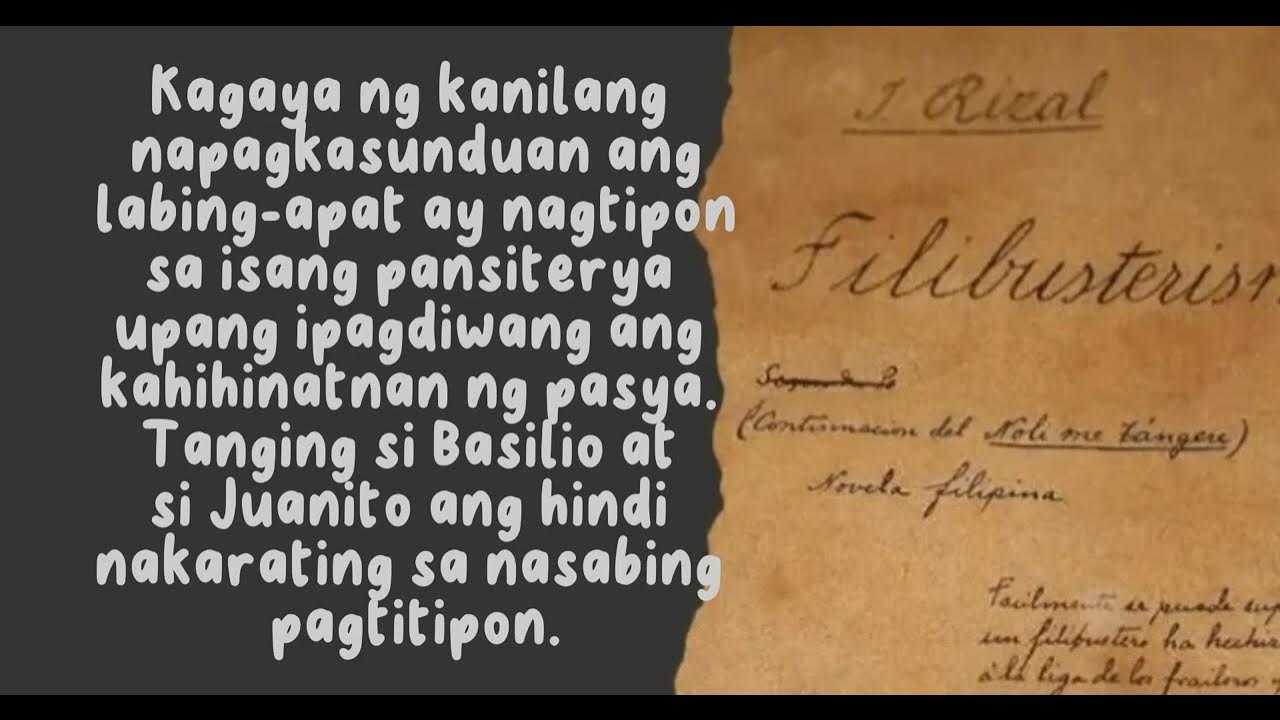 Kagaya ng kanilang
napagkasunduan ang
labing-apat ay nagtipon
sa isang pansiterya
upang ipagdiwang ang
kahihinatnan ng pasya.
Tanging si Basilio at
si Juanito ang hindi
nakarating sa nasabing
pagtitipon.
J. Rizal
Filibusteris
(Continuacion del Noli me tángere)
Novela filipina
Facilmente se puede
un filibustero ha
á la liga de los